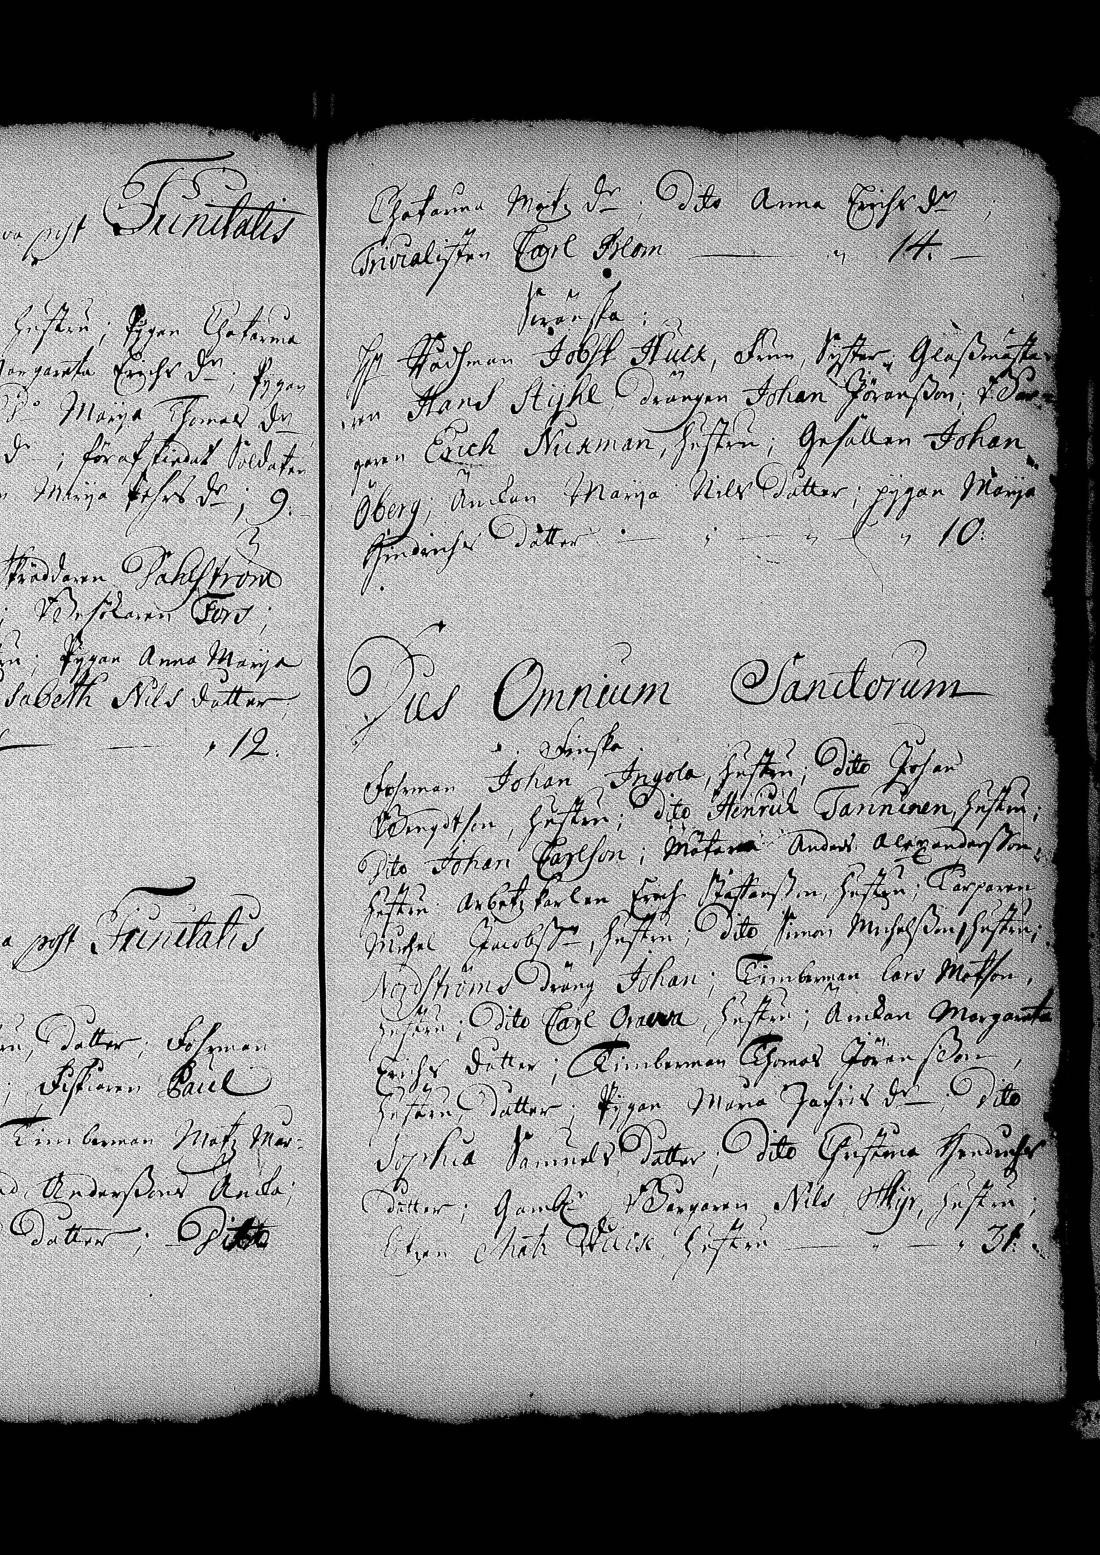 post Trinitatis
hustru; Pygan Chatarina
Margareta Erichs dr; Pygan
Marija Thomas dr
d; föraf skiedat Soldaten
Marija Pehrs dr; 9.
Skräddaren Dahlström
; Besökaren Fors;
Pygan Anna Marija
Elisabeth Nils dotter,
12.
post Trinitatis
dotter; Fohrman
; Fiskiaren Paul
Timberman Matz Mar-
Anderssons Änka;
dotter; Ditto
Chatarina Matz dr. Dito Anna Erichs dr;
Trivialisten Carl Blom — 14.
Swänska;
Rådhman Jobst Kulk, Frun, Syster; Glassmästa-
ren Hans Stijhl, drängen Johan Jöransson; Bor-
garen Erich Nukman, hustru; Gesällen Johan
Öberg; Änkan Marija Nils dotter; pygan Marija
Hindrichs dotter — 10.
Dies Omnium Sanctorum
Finska
Fohrman Johan Ingola, hustru; Dito Johan
Bengdtson, hustru; dito Henrich Tanninen, hustru;
Dito Johan Carlson; Anders Alexandersson,
hustru; Arbetz karlen Erich Staffansson, hustru; Karparen
Michel Jacobss, hustru; dito Simon Michelsson, hustru;
Nordströms dräng Johan; Timberman Lars Matson,
hustru; dito Carl, hustru; Änkan Margareta
Erichs dotter; Timberman Thomas Jöransson,
hustru, dotter; Pygan Maria dr. dito
Sophia Samuels dotter; dito Christina Hendrichs
dotter; Gamble Borgaren Nils, hustru;
Matz, hustru — 31.